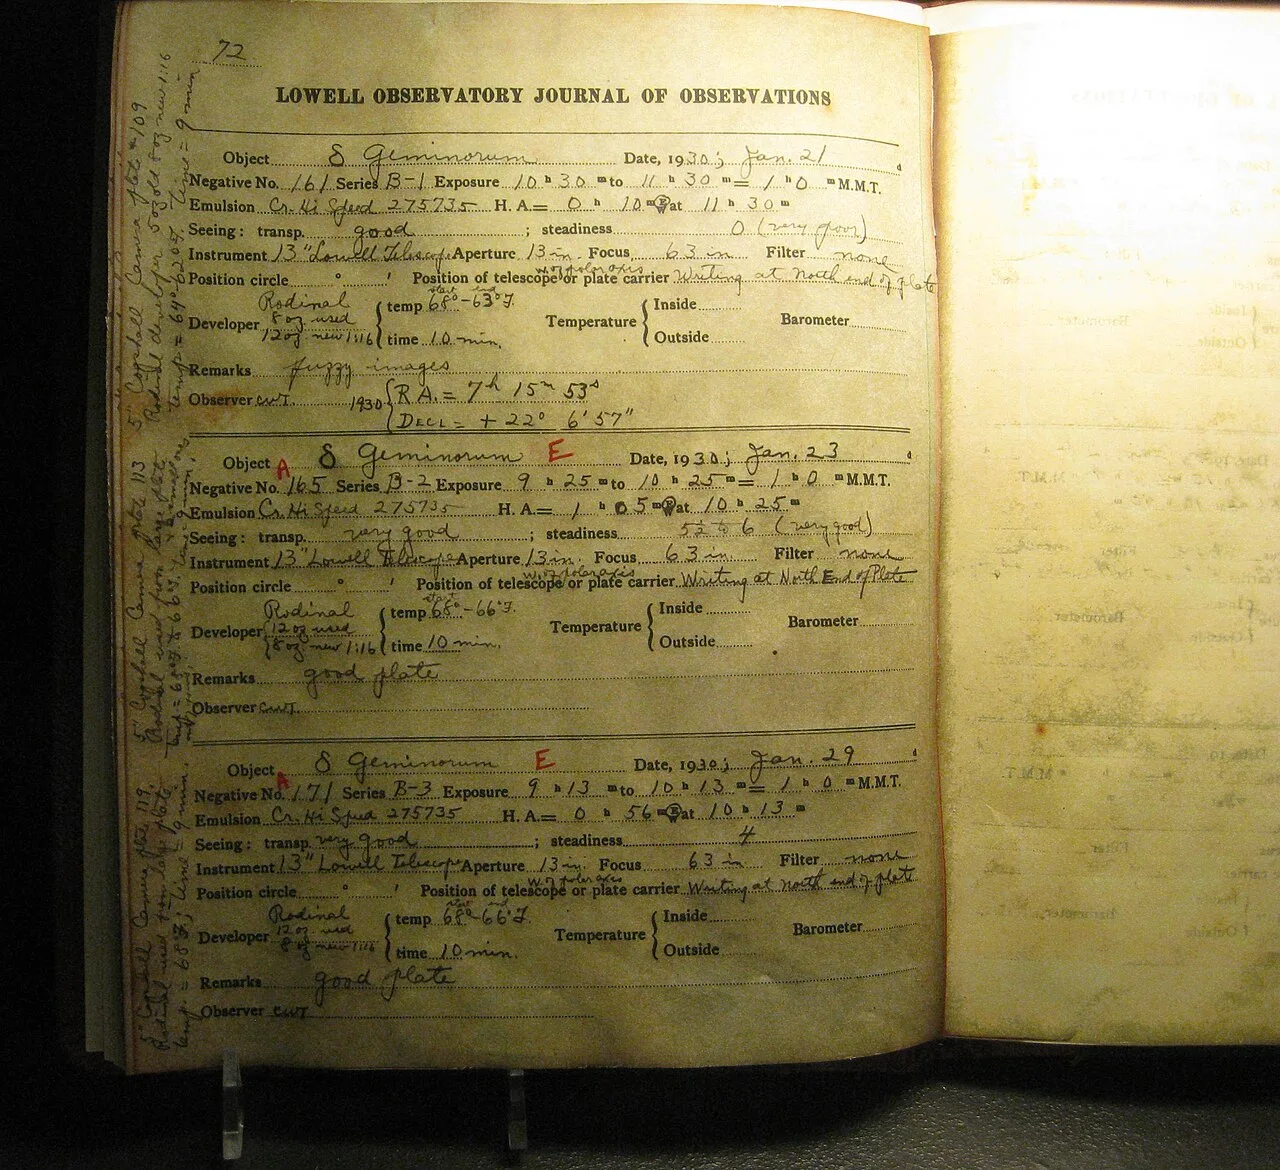 72
LOWELL OBSERVATORY JOURNAL OF OBSERVATIONS
Object δ Geminorum Date, 1930; Jan. 21 d
Negative No. 161 Series B-1 Exposure 10 h 30 m to 11 h 30 m = 1 h 0 m M.M.T.
Emulsion Cr. Hi Speed 275735 H. A = 0 h 10 m E at 11 h 30 m
Seeing: transp. good ; steadiness 0 (very poor)
Instrument 13" Lowell Telescope Aperture 13 in. Focus 63 in Filter none
w. of polar axis
Position circle ° ' Position of telescope or plate carrier Writing at North end of plate
Rodinal start end
8 oz used temp 68° - 63° F. Inside
Developer 12 oz new 1:16 Temperature Barometer
time 10 min. Outside
Remarks fuzzy images
Observer CWT. 1930 R.A. = 7h 15m 53s
DECL = + 22° 6' 57"
Object A δ Geminorum E Date, 1930; Jan. 23 d
Negative No. 165 Series B-2 Exposure 9 h 25 m to 10 h 25 m = 1 h 0 m M.M.T.
Emulsion Cr. Hi Speed 275735 H. A = 1 h 05 m at 10 h 25 m
Seeing: transp. very good ; steadiness to 6 (very good)
Instrument 13" Lowell Telescope Aperture 13 in. Focus 63 in. Filter none
w. of polar axis
Position circle ° ' Position of telescope or plate carrier Writing at North End of Plate
Rodinal start
12 oz used temp 68° - 66° F. Inside
Developer 8 oz new 1:16 Temperature Barometer
time 10 min. Outside
Remarks good plate
Observer CWT.
Object A δ Geminorum E Date, 1930; Jan. 29 d
Negative No. 171 Series B-3 Exposure 9 h 13 m to 10 h 13 m = 1 h 0 m M.M.T.
Emulsion Cr. Hi Speed 275735 H. A = 0 h 56 m E at 10 h 13 m
Seeing: transp. very good ; steadiness 4
Instrument 13" Lowell Telescope Aperture 13 in. Focus 63 in Filter none
w. of polar axis
Position circle ° ' Position of telescope or plate carrier Writing at North end of plate
Rodinal start end
12 oz used temp 68° - 66° F. Inside
Developer 8 oz new 1:16 Temperature Barometer
time 10 min. Outside
Remarks good plate
Observer CWT
5" Cogshall Camera plate #109
Rodinal developer 5 oz old 5 oz new 1:16
temp = 64° F; time = 9 min
5" Cogshall Camera plate 113
Rodinal used from large plate
5" Cogshall Camera plate 119
Rodinal used from large plate
temp = 68° F; time = 9 min.